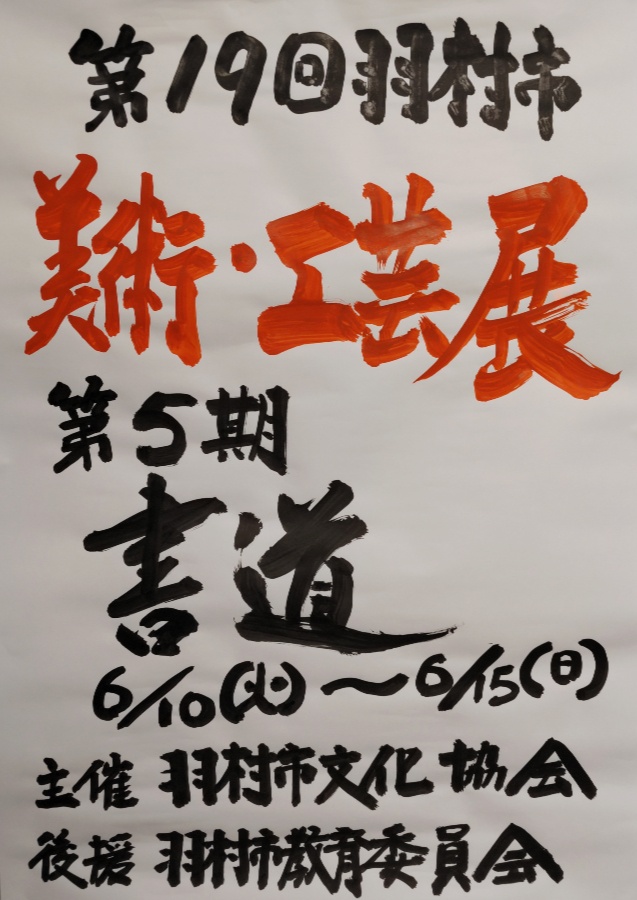 第19回羽村市
美術・工芸展
第5期
書道
6/10(火)〜6/15(日)
主催 羽村市文化協会
後援 羽村市教育委員会